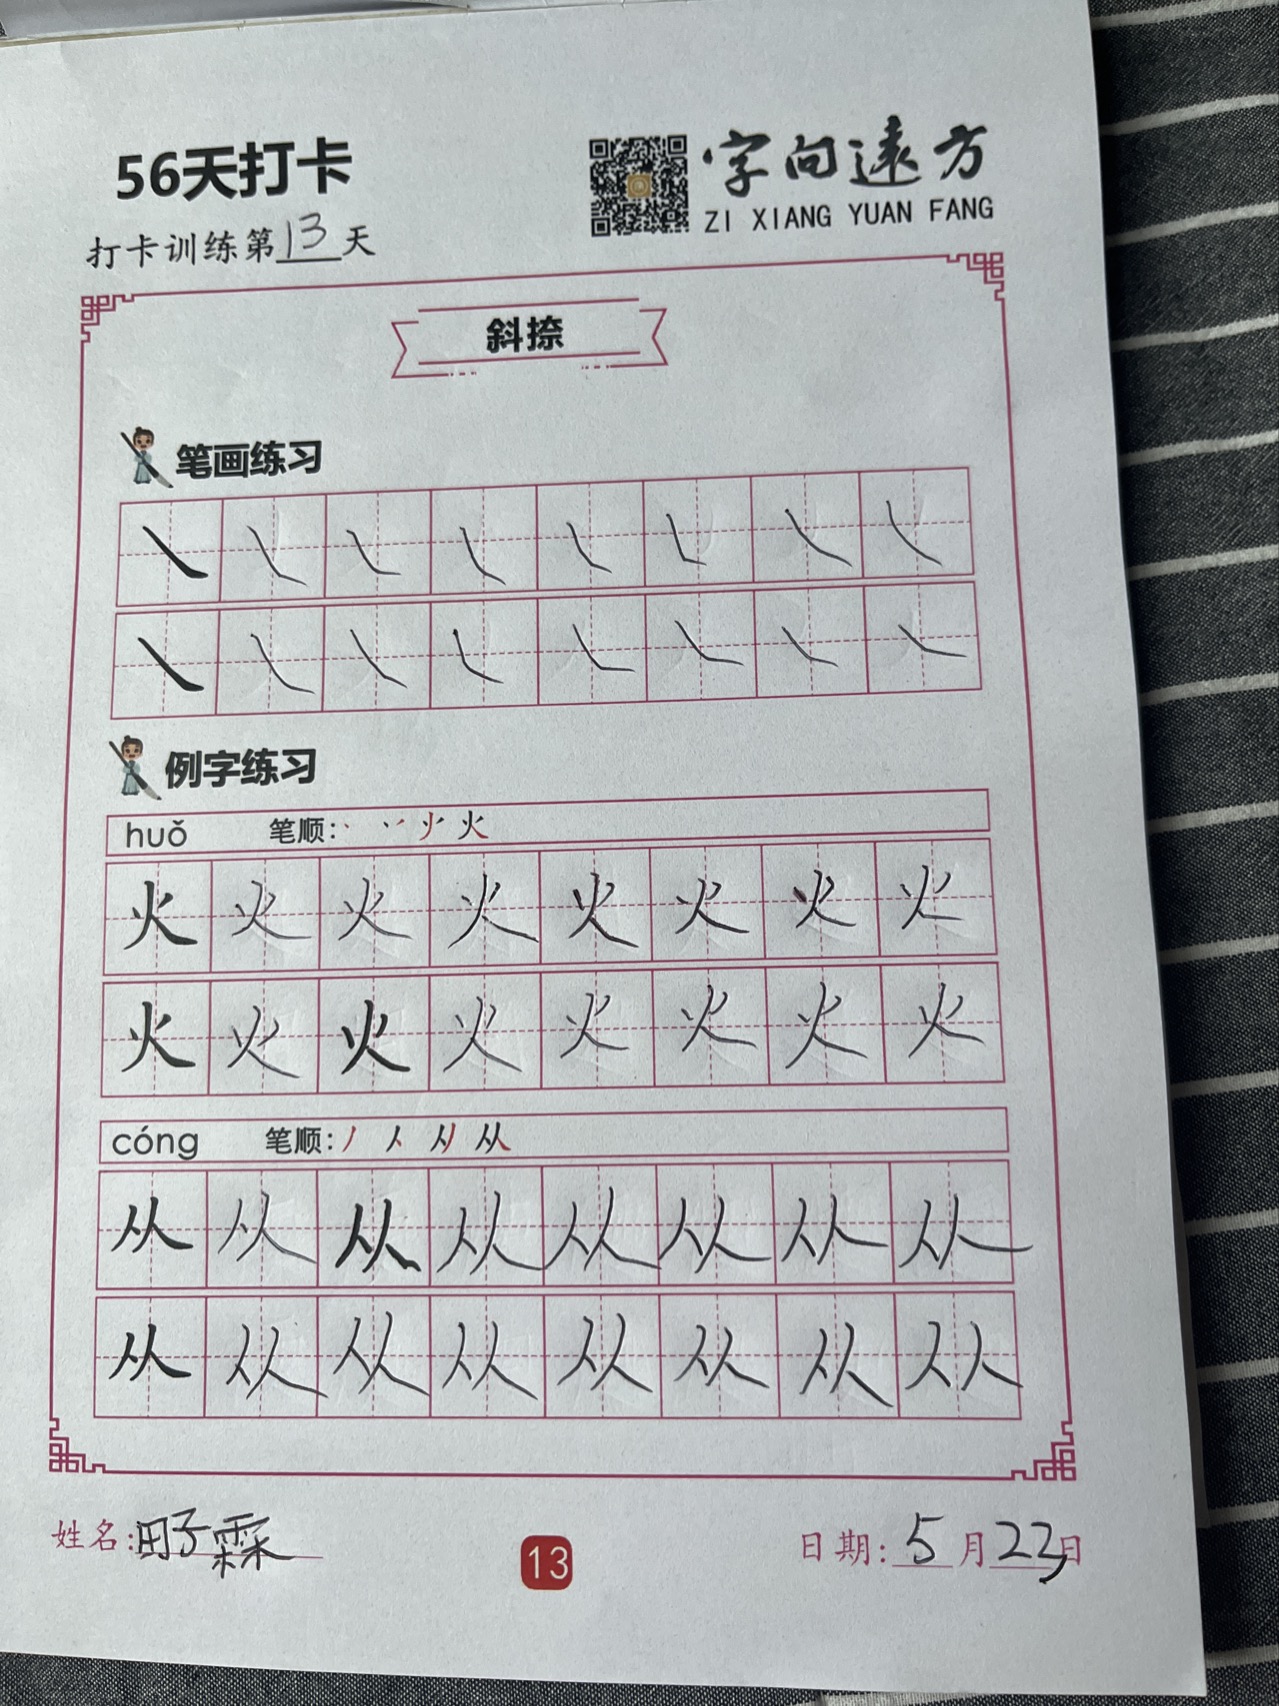 56天打卡
字向遠方
ZI XIANG YUAN FANG
打卡训练第13天
斜捺
笔画练习
㇏ ㇏ ㇏ ㇏ ㇏ ㇏ ㇏ ㇏
㇏ ㇏ ㇏ ㇏ ㇏ ㇏ ㇏ ㇏
例字练习
huǒ 笔顺: 火
火 火 火 火 火 火 火 火
火 火 火 火 火 火 火 火
cóng 笔顺: 从
从 从 从 从 从 从 从 从
从 从 从 从 从 从 从 从
姓名: 田子霖
13
日期: 5月23日